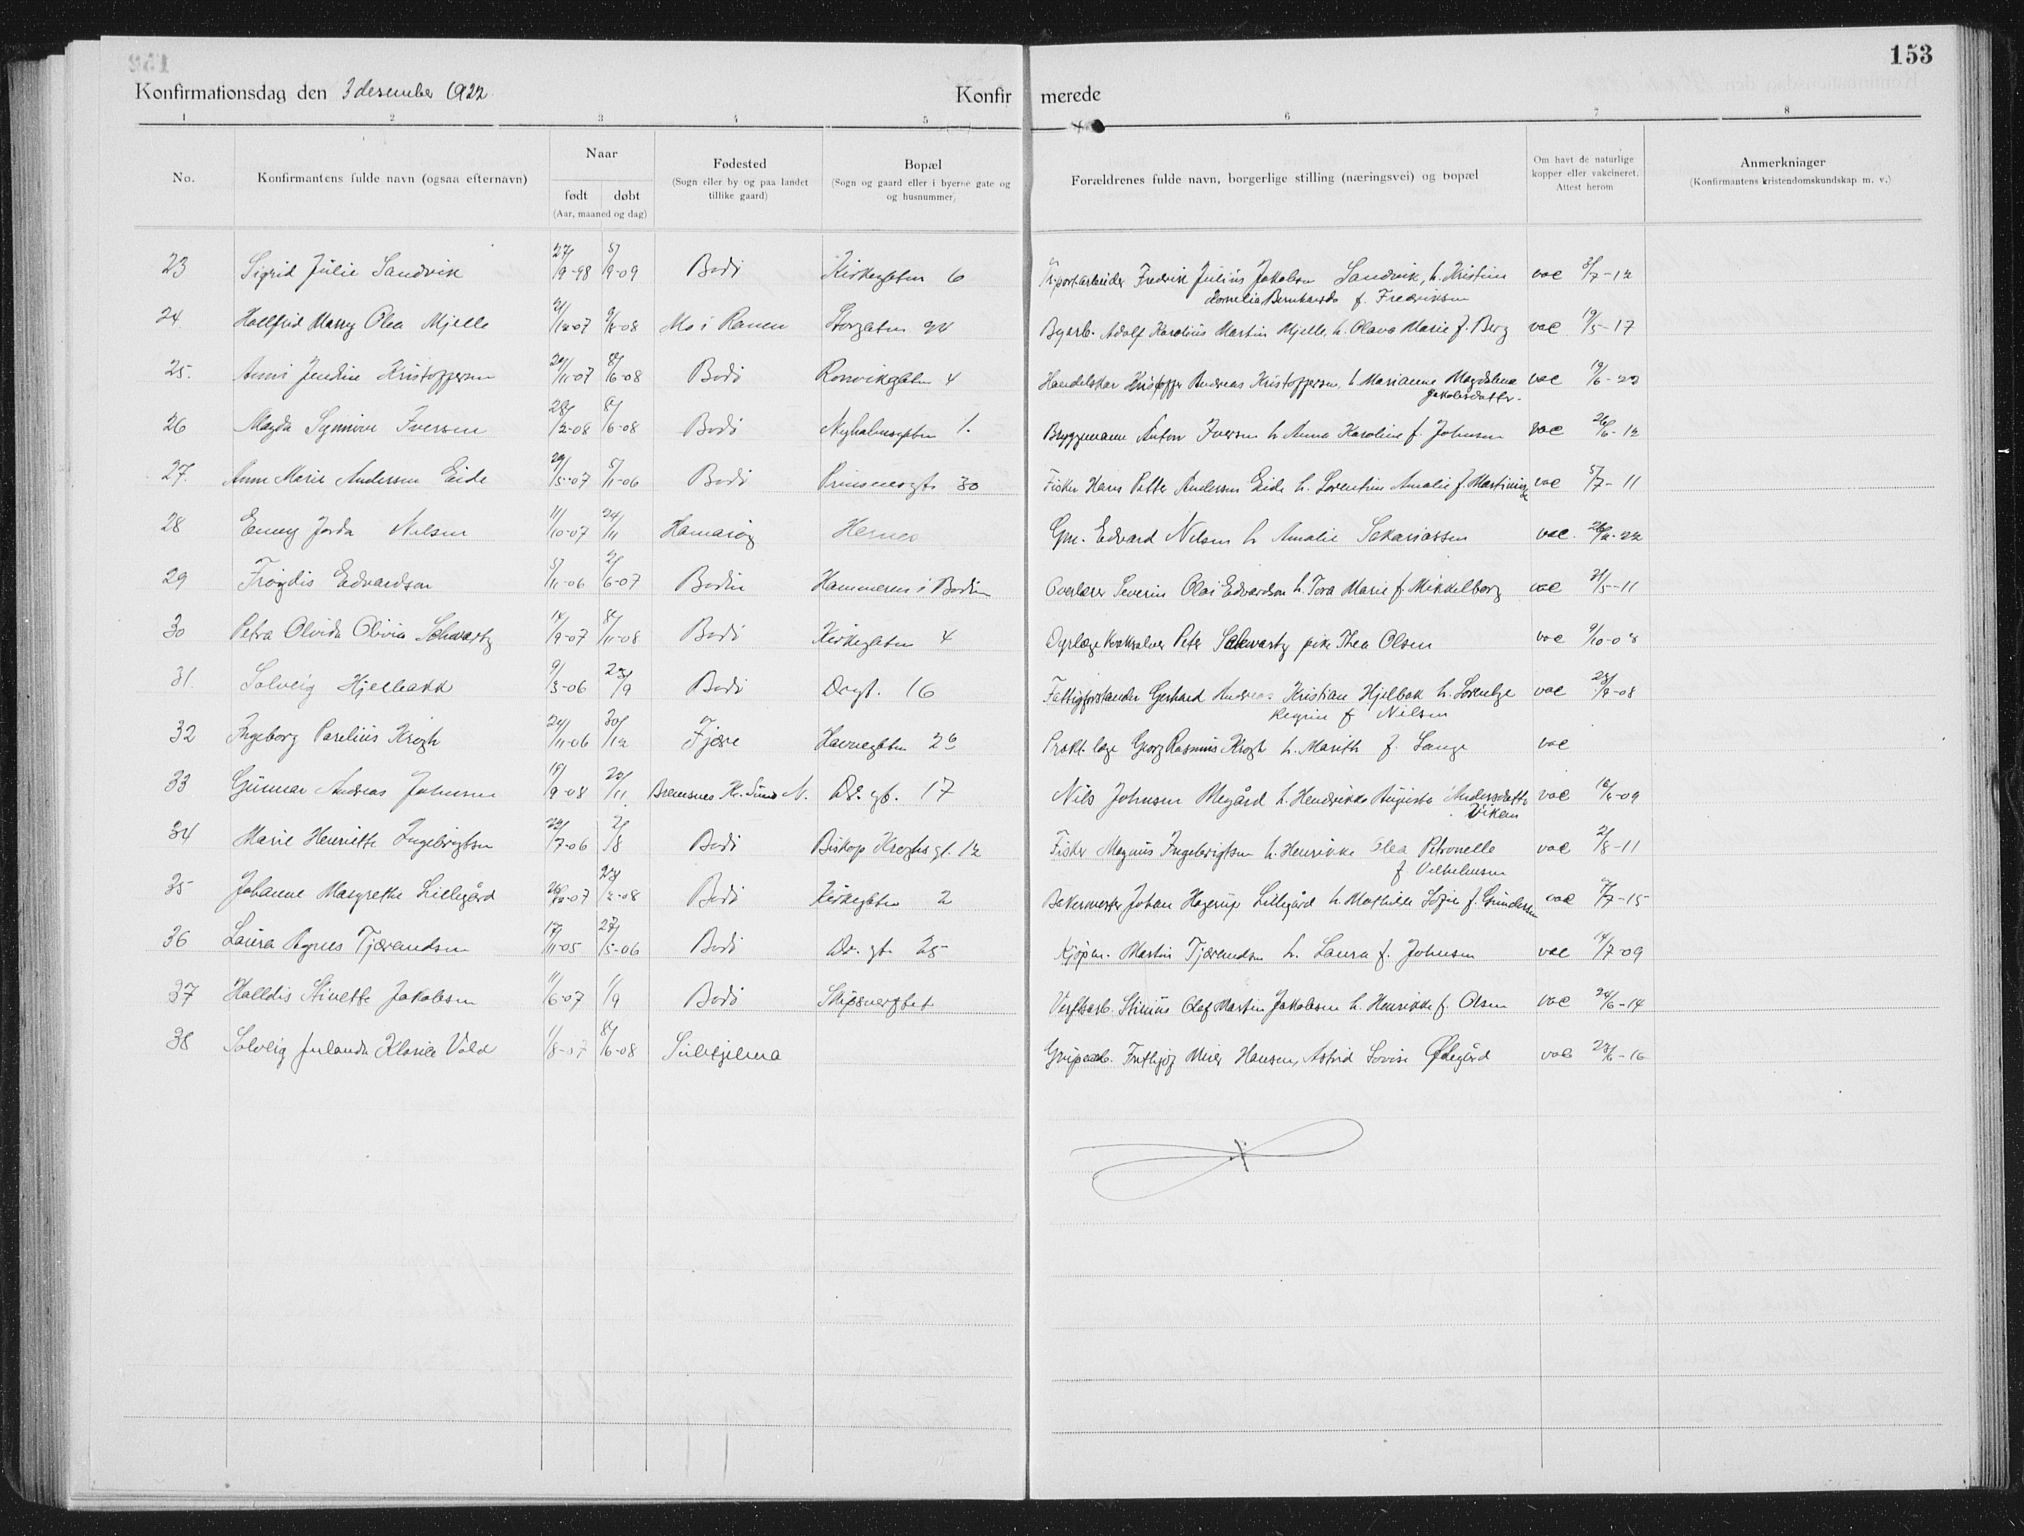 153
Konfirmationsdag den 3 desember 1922
Konfir merede
1 2 3 4 5 6 7 8
No. Konfirmantens fulde navn (ogsaa efternavn) Naar født døbt (Aar, maaned og dag)
Fødested (Sogn eller by og paa landet tillike gaard)
Bopæl (Sogn og gaard eller i byerne gate og og husnummer)
Forældrenes fulde navn, borgerlige stilling (næringsvei) og bopæl
Om havt de naturlige kopper eller vakcineret. Attest herom
Anmerkninger (Konfirmantens kristendomskundskap m. v.)
23 Sigrid Julie Sandvik 27/9-98 5/9-09 Bodø Kirkegaten 6 Fredrik Julius Jakobsen Sandvik, h. Kristine vac 3/7-12
Kornelia Bernharda f. Fredriksen
24 Hallfrid Marry Olea Mjelle 21/12-07 9/8-08 Mo i Ranen Storgaten 94 Byarb. Adolf Karolius Martin Mjelle h. Olava Marie f. Berg vac 19/5-17
25. Anni Jendine Kristoffersen 20/11-07 8/6-08 Bodø Ronvikgaten 4 Handelskar Kristoffer Andreas Kristoffersen h. Marianne Magdalena vac 19/6-22
Jakobsdatter.
26 Magda Synnøve Iversen 28/2-08 8/6-08 Bodø Nyholmsgaten 1. Bryggemann Anton Iversen h Anna Karoline f. Johnsen vac 26/6-12
27. Anne Marie Andersen Eide 29/5-07 5/1-06 Bodø Prinsensgt. 30 Fisker Hans Petter Andersen Eide h. Lorentine Amalie f. vac 5/7-11
28 Emmy Jorda Nilsen 11/10-07 24/11 Hamarøy Hernes Gm. Edvard Nilsen h Amalie Sakariassen vac.
29 Frøydis Edvardsen 5/11-06 2/6-07 Bodin Hammeren i Bodin Overlærer Severin Olai Edvardsen h. Tora Marie f. Mikkelborg vac 21/5-11
30 Petra Olvida Olivia Schwartz 14/9-07 8/11-08 Bodø Kirkegaten 4 Dyrlæge Peter Schwartz pike Thea Olsen vac 9/10-08
31. Solveig Hjelbakk 9/3-06 23/9 Bodø Drgt. 16 Fattigforstander Gerhard Andreas Kristian Hjelbak h. Lorentze vac 23/9-08
Regine f Nilsen
32 Ingeborg Parelius Krogh 24/11-06 30/12 Fjære Havnegaten 26 Prakt. læge Georg Rasmus Krogh h. Marith f. Lange vac
33 Gunnar Andreas Johnsen 19/9-08 22/11 Bremsnes Kr. Sund N. Dr. gt. 17 Nils Johnsen h. Hendrikke Augusta Andersdatter vac 18/6-09
Viken
34 Marie Henriette Ingebrigtsen 22/7-06 2/8 Bodø Biskop Kroghs gt. 12 Fisker Magnus Ingebrigtsen h. Henrikke Elea Petronelle vac 2/8-11
f Vilhelmsen
35 Johanne Margrethe Lillegård 26/10-07 23/2-08 Bodø Kirkegaten 2 Bakermester Johan Hagerup Lillegård h. Mathilde Sofie f. Gundersen vac 7/7-15
36 Laura Agnes Tjærandsen 17/11-05 27/5-06 Bodø Dr. gt. 25 Kjøpm. Martin Tjærandsen h. Laura f. Johnsen vac 14/7-09
37 Halldis Stinette Jakobsen 11/6-07 1/9 Bodø Skipsvergtet Verftsarb. Stinius Olaf Martin Jakobsen h. Henrikke f. Olsen vac 24/6-14
38 Solveig Jorlanda Klarise Vold 11/8-07 8/6-08 Sulitjelma Gruvearb. Frithjof Meier Hansen, Astrid Lovise Ødegård vac 23/6-16